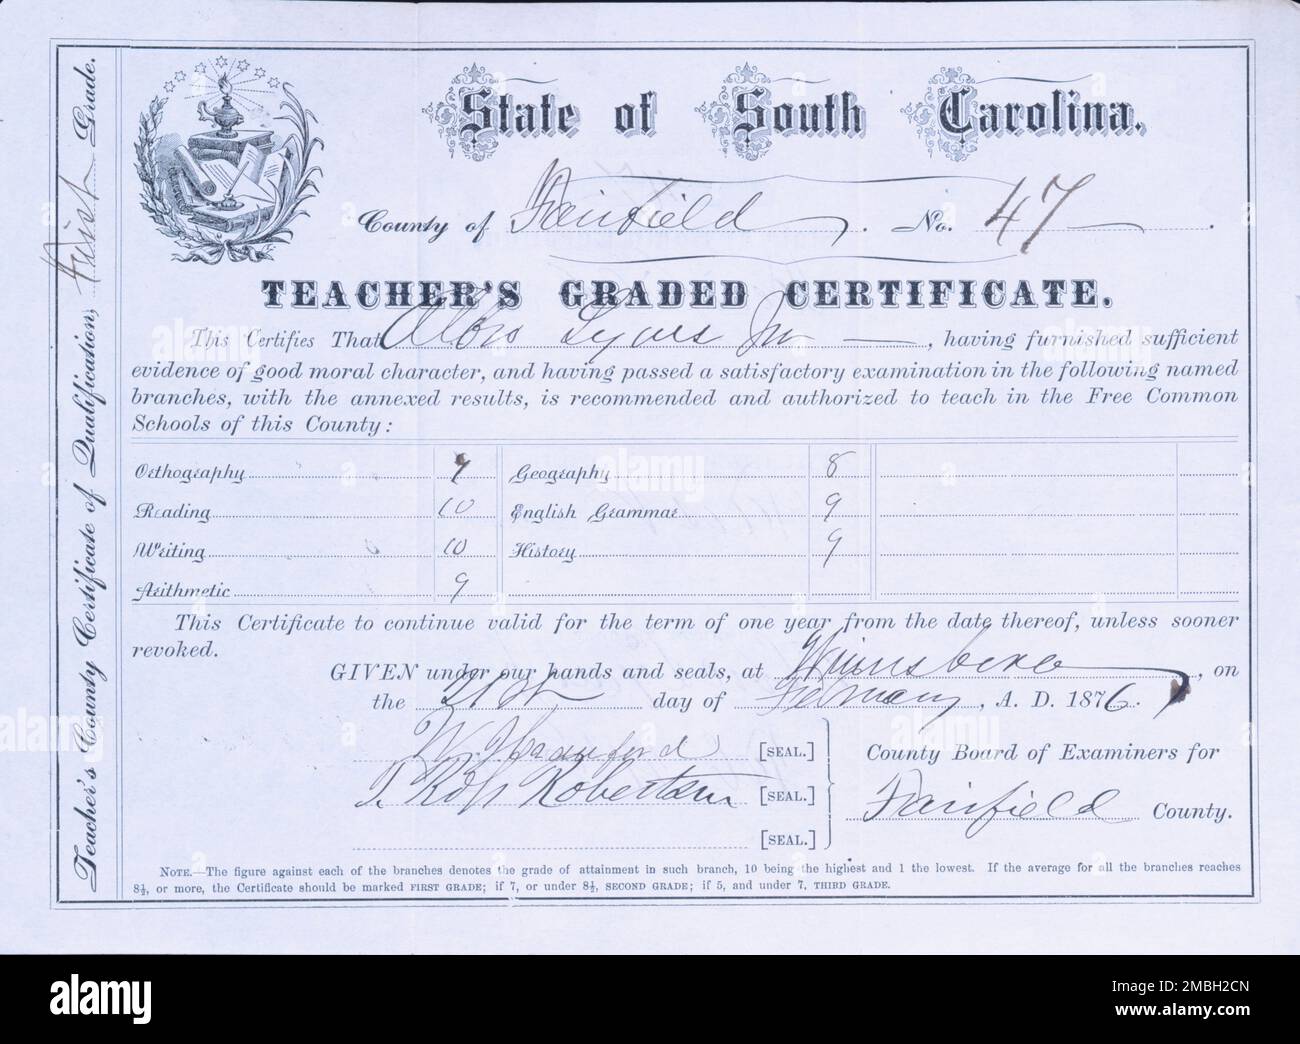 State of South Carolina.
County of Fairfield. No. 47.
TEACHER'S GRADED CERTIFICATE.
This Certifies That Jr, having furnished sufficient
evidence of good moral character, and having passed a satisfactory examination in the following named
branches, with the annexed results, is recommended and authorized to teach in the Free Common
Schools of this County:
Orthography Geography 8
Reading 10 English Grammar 9
Writing 10 History 9
Arithmetic 9
This Certificate to continue valid for the term of one year from the date thereof, unless sooner
revoked.
GIVEN under our hands and seals, at Winnsboro, on
the 21st day of February, A. D. 1876.
W. J. Crawford [SEAL.] County Board of Examiners for
J. Ross Robertson [SEAL.] Fairfield County.
[SEAL.]
NOTE.—The figure against each of the branches denotes the grade of attainment in such branch, 10 being the highest and 1 the lowest. If the average for all the branches reaches
8½, or more, the Certificate should be marked FIRST GRADE; if 7, or under 8½, SECOND GRADE; if 5, and under 7, THIRD GRADE.
Teacher's County Certificate of Qualification, First Grade.
alamy
Image ID: 2MBH2CN
www.alamy.com